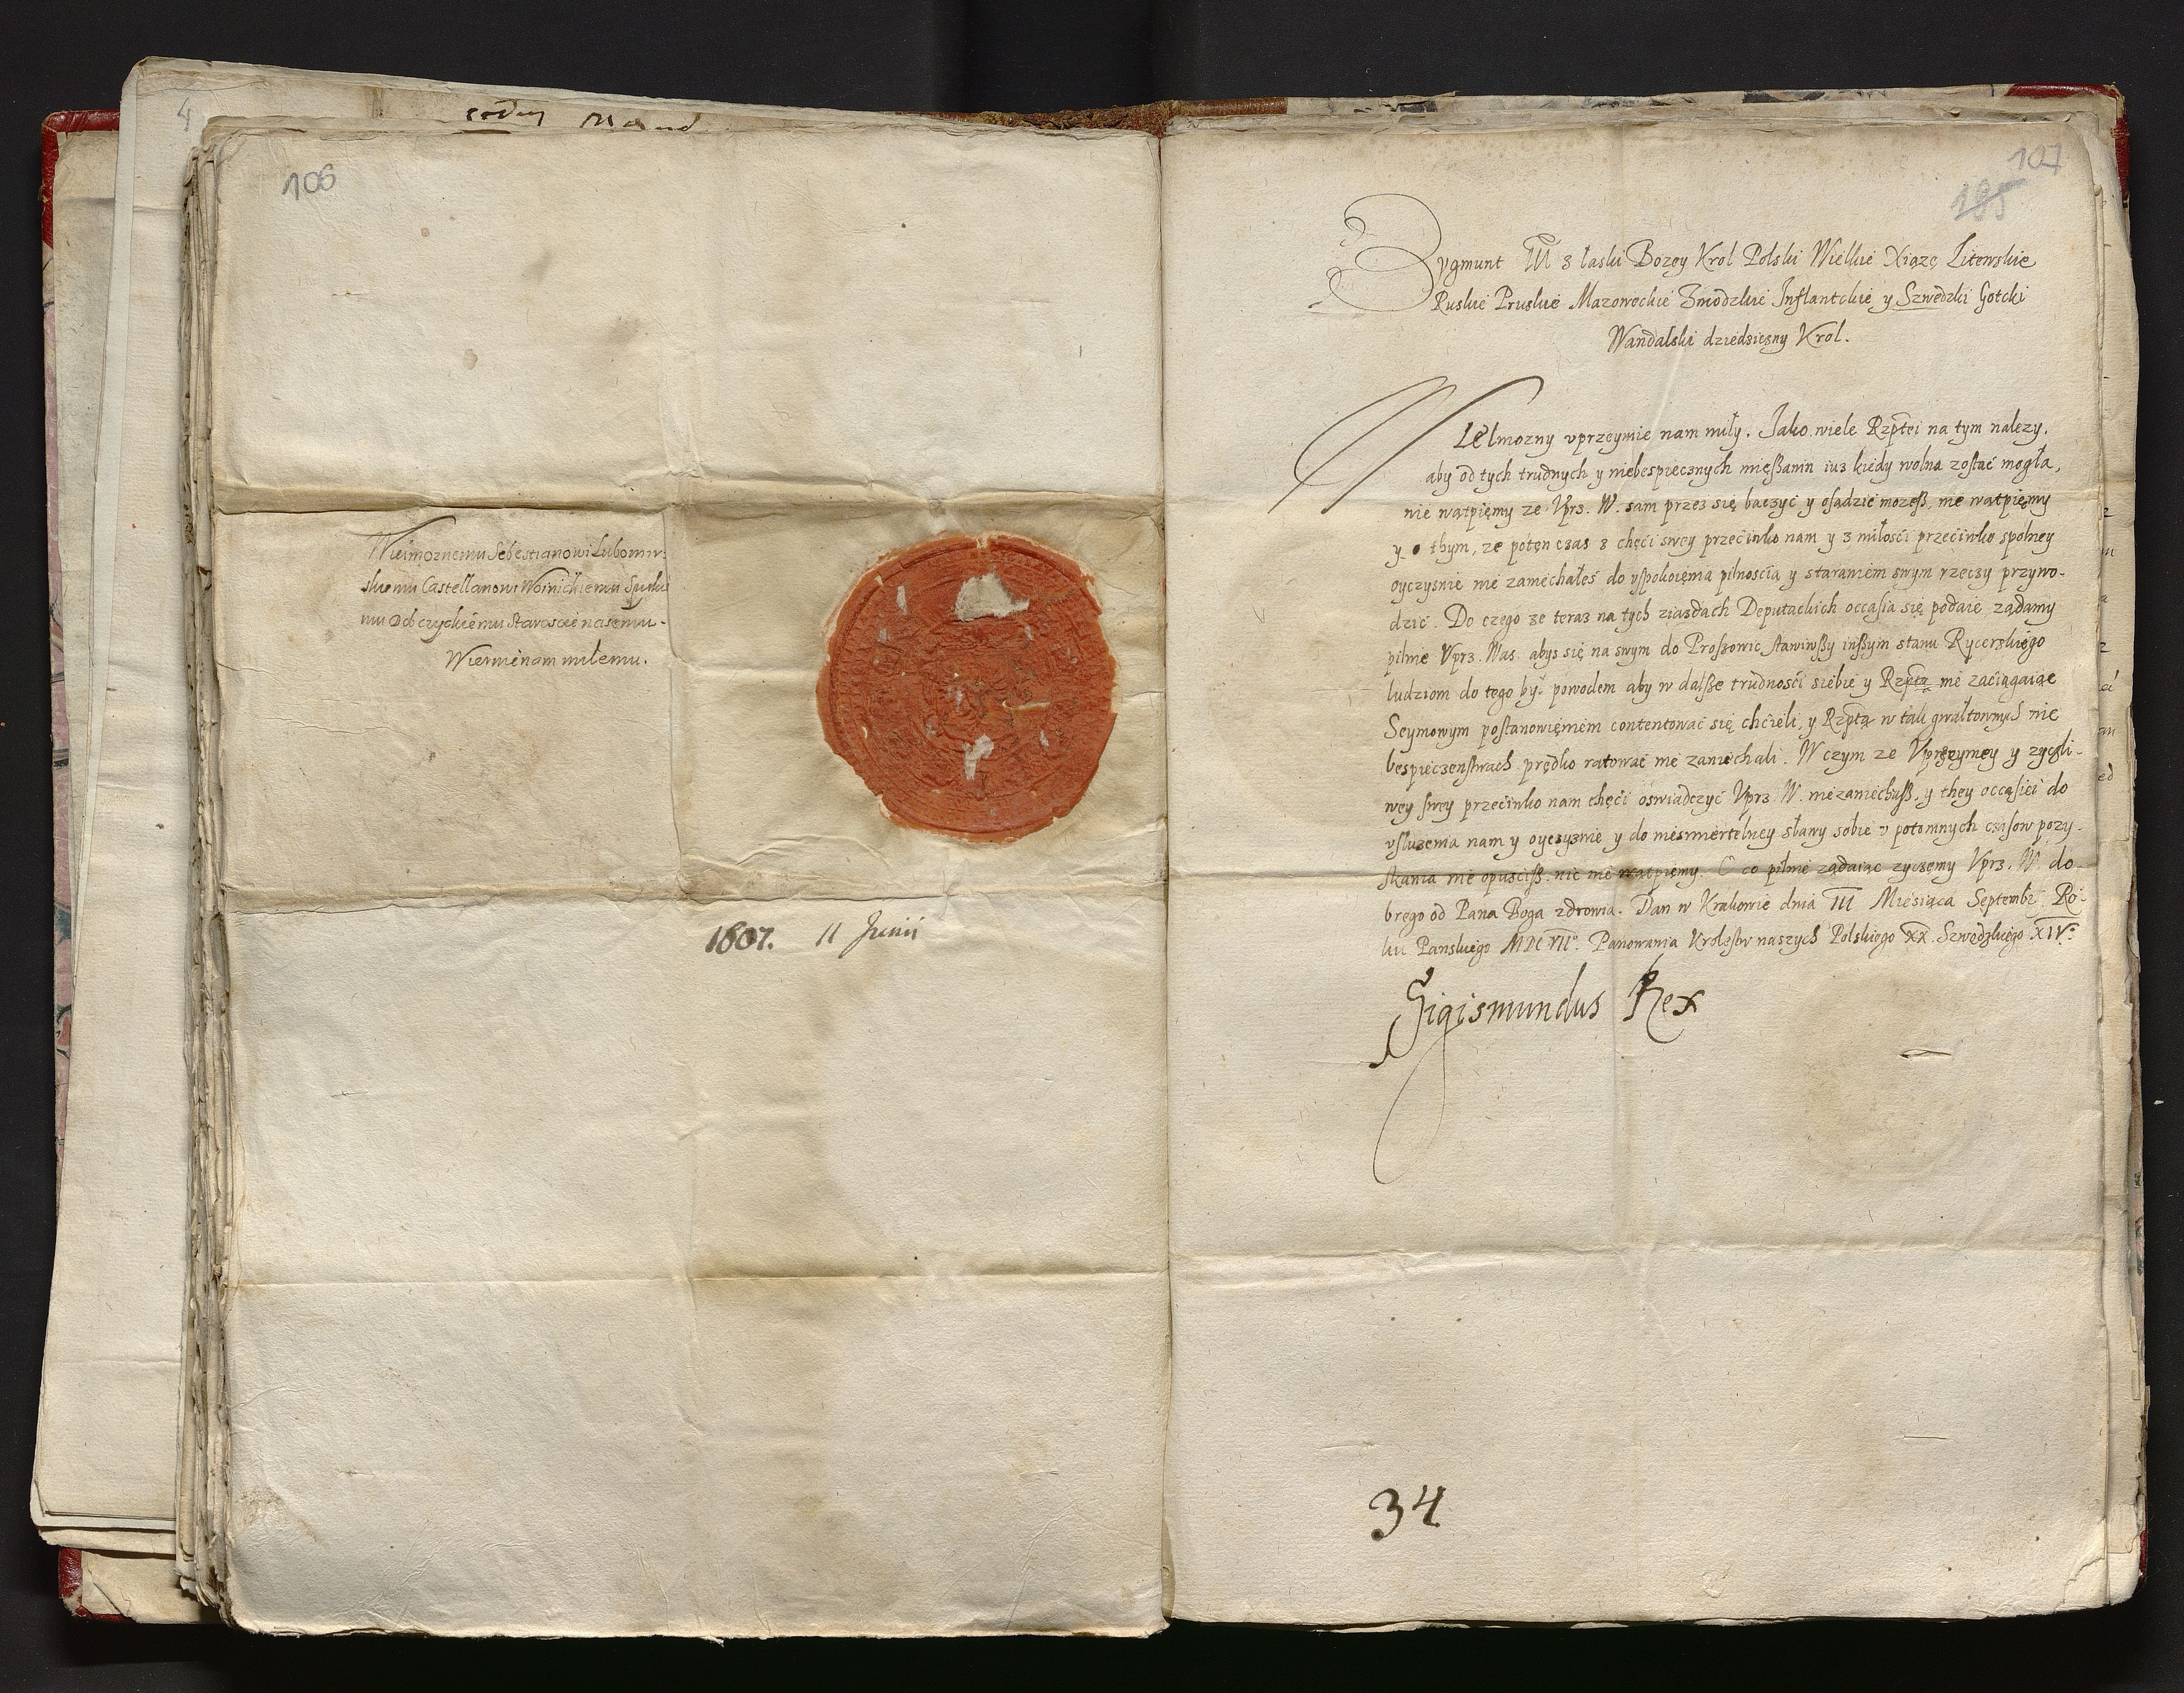 4
106
Wielmoznemu Sebestianowi Lubomir:
skiemu Castellanowi Woinickiemu Spiski
mu Dobczyckiemu Staroscie naszemu.
Wiernie nam miłemu.
1607. 11 Junii
107
105
Zygmunt III z łaski Bozey Krol Polski Wielkie Xiązę Litewskie
Ruskie Pruskie Mazoweckie Zmodzkie Inflantckie y Szwedzki Gotcki
Wandalski dziedziczny Krol.
Wielmozny vprzeymie nam miły. Jako wiele Rzptei na tym nalezy,
aby od tych trudnych y niebespiecznych mięßanin iuz kiedy wolna zostać mogła,
nie wątpięmy ze Vprz. W. sam przez się baczyć y osądzić mozeß, nie wątpięmy
y o thym, ze poten czas z chęci swey przeciwko nam y z miłosci przeciwko spolney
oyczysnie nie zamechałeś do vspokoięnia pilnoscią y staraniem swym rzeczy przywo-
dzić. Do czego ze teraz na tych ziazdach Deputackich occasia się podaie ządamy
pilnie Vprz. Was. abys się na swym do Proszowic stawiwßy inßym stanu Rycerskięgo
ludziom do tego był powodem aby w dalße trudności siebie y Rzptą nie zaciągaiąc
Seymowym postanowięniem contentować się chcieli, y Rzptą w tak gwałtownych nie
bespieczenstwach prędko ratować nie zaniechali. W czym ze Vprzeymey y zyczli-
wey swey przeciwko nam chęci oświadczyć Vprz. W. niezaniechaß, y they occasiei do
vsłuzenia nam y oyczyznie y do niesmiertelney sławy sobie v potomnych czasow pozy-
skania nie opuscisß nic nie wątpięmy. O co pilnie ządaiąc zyczęmy Vprz. W. do-
brego od Pana Boga zdrowia. Dan w Krakowie dnia III Miesiąca Septembr. Ro-
ku Panskiego MDCVII. Panowania Krolestw naszych Polskiego XX. Szwedzkiego XIV.
Sigismundus Rex
34